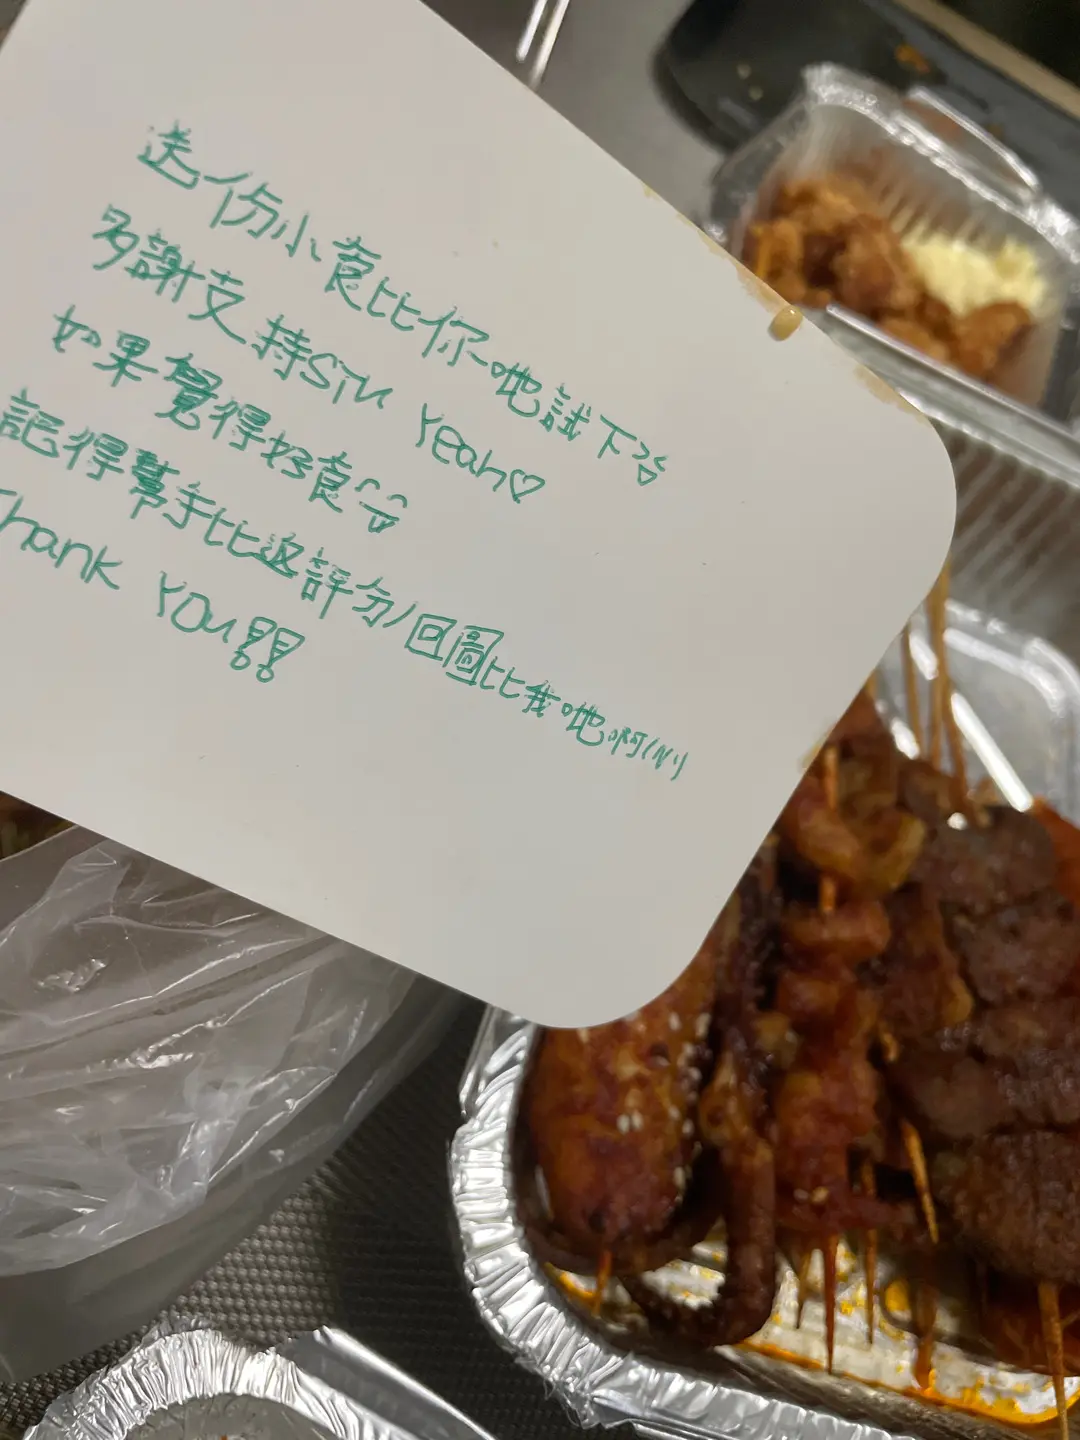 送份小食比你哋試下
多謝支持STU Yeah♡
如果覺得好食
記得幫手比返評分/回圖比我哋啊
Thank You